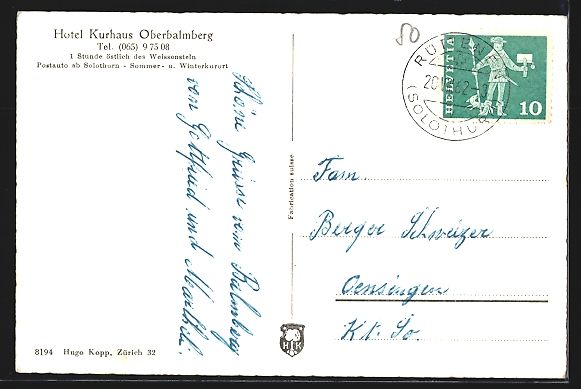 Hotel Kurhaus Oberbalmberg
Tel. (065) 9 75 08
1 Stunde östlich des Weissenstein
Postauto ab Solothurn - Sommer- u. Winterkurort
Schöne Grüsse vom Balmberg
von Gottfried und
8194 Hugo Kopp, Zürich 32
Fabrication suisse
HK
50
(SOLOTHURN)
HELVETIA
10
Fam.
Berger Schweizer
Oensingen
Kt. So.